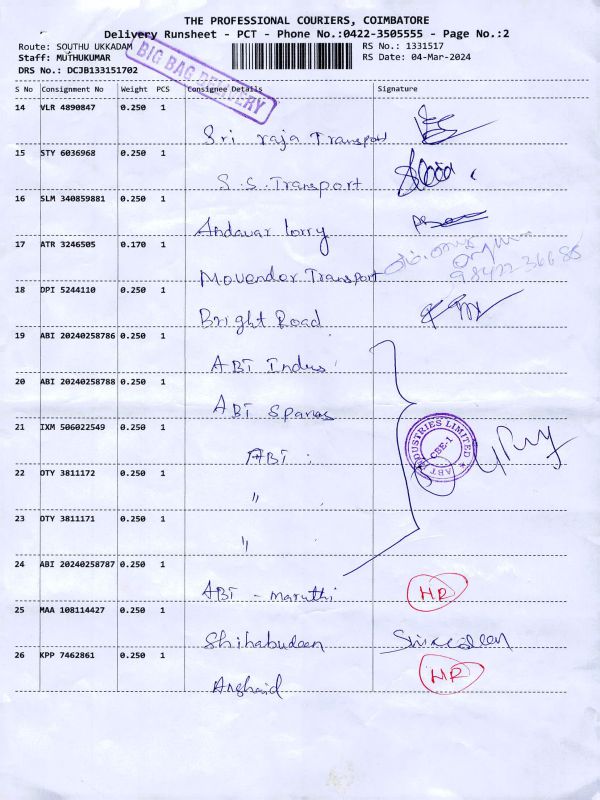 THE PROFESSIONAL COURIERS, COIMBATORE
Delivery Runsheet - PCT - Phone No.:0422-3505555 - Page No.:2
Route: SOUTHU UKKADAM
RS No.: 1331517
Staff: MUTHUKUMAR
RS Date: 04-Mar-2024
DRS No.: DCJB133151702
BIG BAG DELIVERY
S No Consignment No Weight PCS Consignee Details Signature
14 VLR 4890847 0.250 1
Sri raja Transport
15 STY 6036968 0.250 1
S.S. Transport
16 SLM 340859881 0.250 1
Andavar lorry
17 ATR 3246505 0.170 1
Movender Transport
98422-36688
18 DPI 5244110 0.250 1
Bright Road
19 ABI 20240258786 0.250 1
ABT Indus
20 ABI 20240258788 0.250 1
ABT Spares
21 IXM 506022549 0.250 1
ABT
ABT INDUSTRIES LIMITED
CBE-1
22 OTY 3811172 0.250 1
"
23 OTY 3811171 0.250 1
"
24 ABI 20240258787 0.250 1
ABT - maruthi
HR
25 MAA 108114427 0.250 1
Shihabudeen
26 KPP 7462861 0.250 1
HR